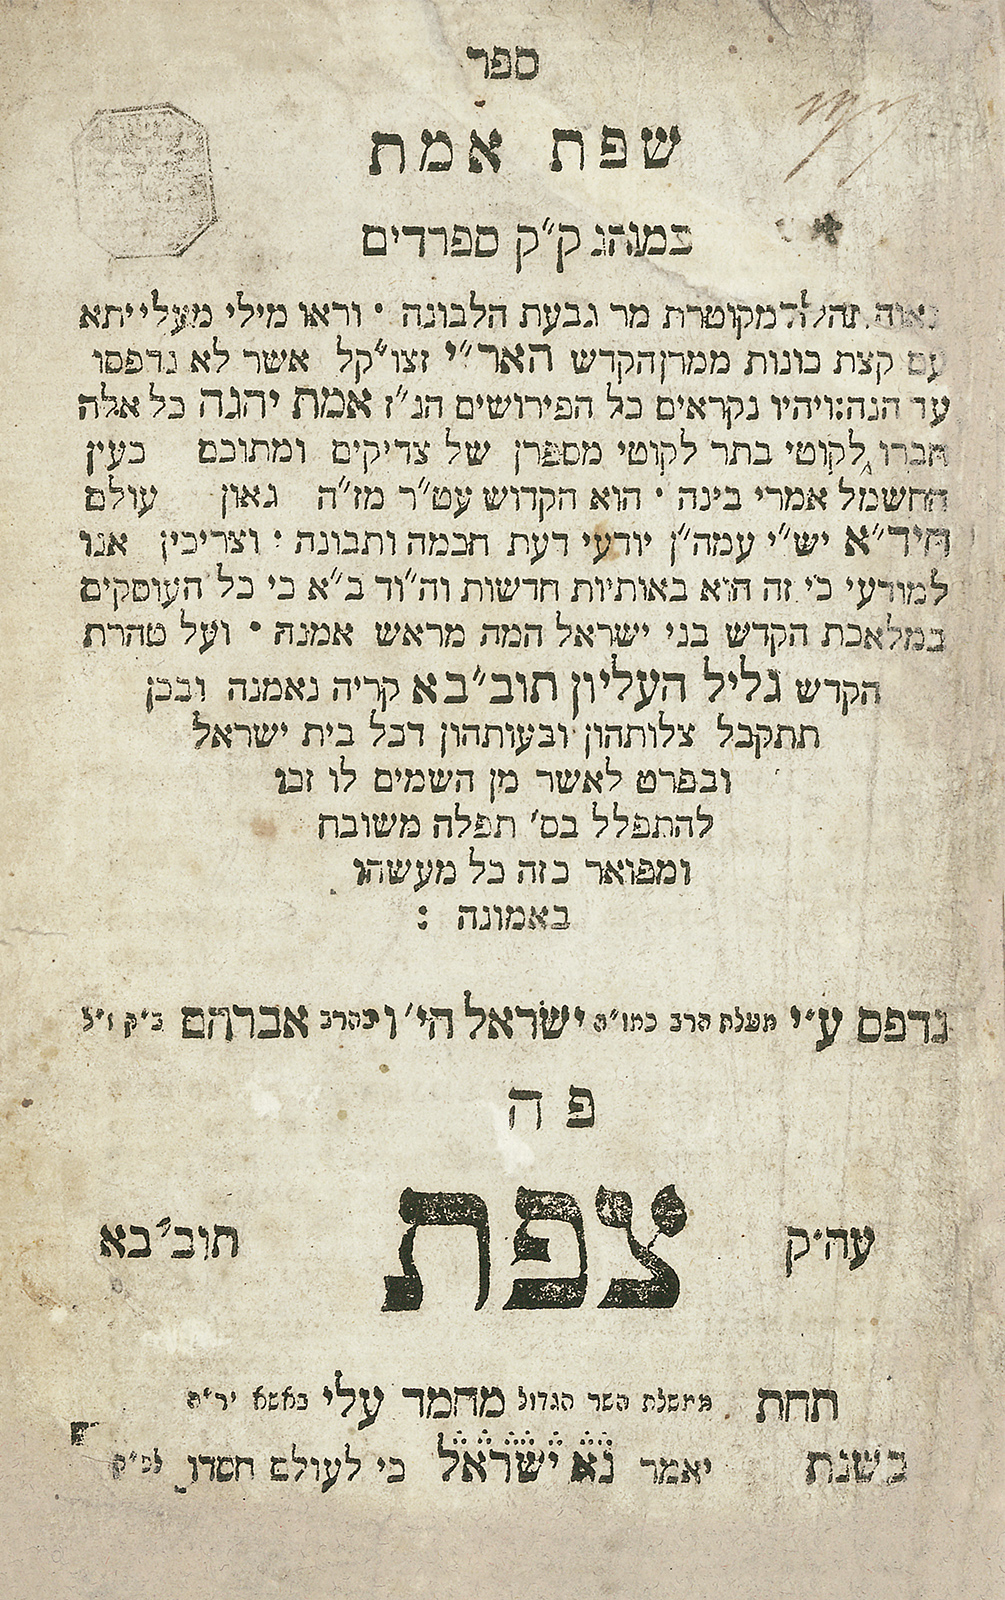 ספר
שפת אמת
במנהג ק״ק ספרדים
נאוה תהלה מקוטרת מר גבעת הלבונה · וראו מילי מעלייתא
עם קצת כונות ממרן הקדש האר״י זצו״קל אשר לא נדפסו
עד הנה: ויהיו נקראים כל הפירושים הנ״ז אמת יהגה כל אלה
חברו לקוטי בתר לקוטי מספרן של צדיקים ומתוכם כעין
החשמל אמרי בינה · הוא הקדוש עט״ר מז״ה גאון עולם
חיד״א יש״י עמה״ן יודעי דעת חכמה ותבונה : וצריכין אנו
למודעי כי זה הוא באותיות חדשות וה״וד ב״א כי כל העוסקים
במלאכת הקדש בני ישראל המה מראש אמנה · ועל טהרת
הקדש גליל העליון תוב״בא קריה נאמנה ובכן
תתקבל צלותהון ובעותהון דכל בית ישראל
ובפרט לאשר מן השמים לו זכו
להתפלל בס׳ תפלה משובח
ומפואר כזה כל מעשהו
באמונה :
נדפס ע״י מעלת הרב כמו״ה ישראל הי״ו בהרב אברהם ב״ק ז״ל
פה
עה״ק צפת תוב״בא
תחת ממשלת השר הגדול מחמד עלי באשא יר״ה
בשנת יאמר נא ישראל כי לעולם חסדו לפ״ק